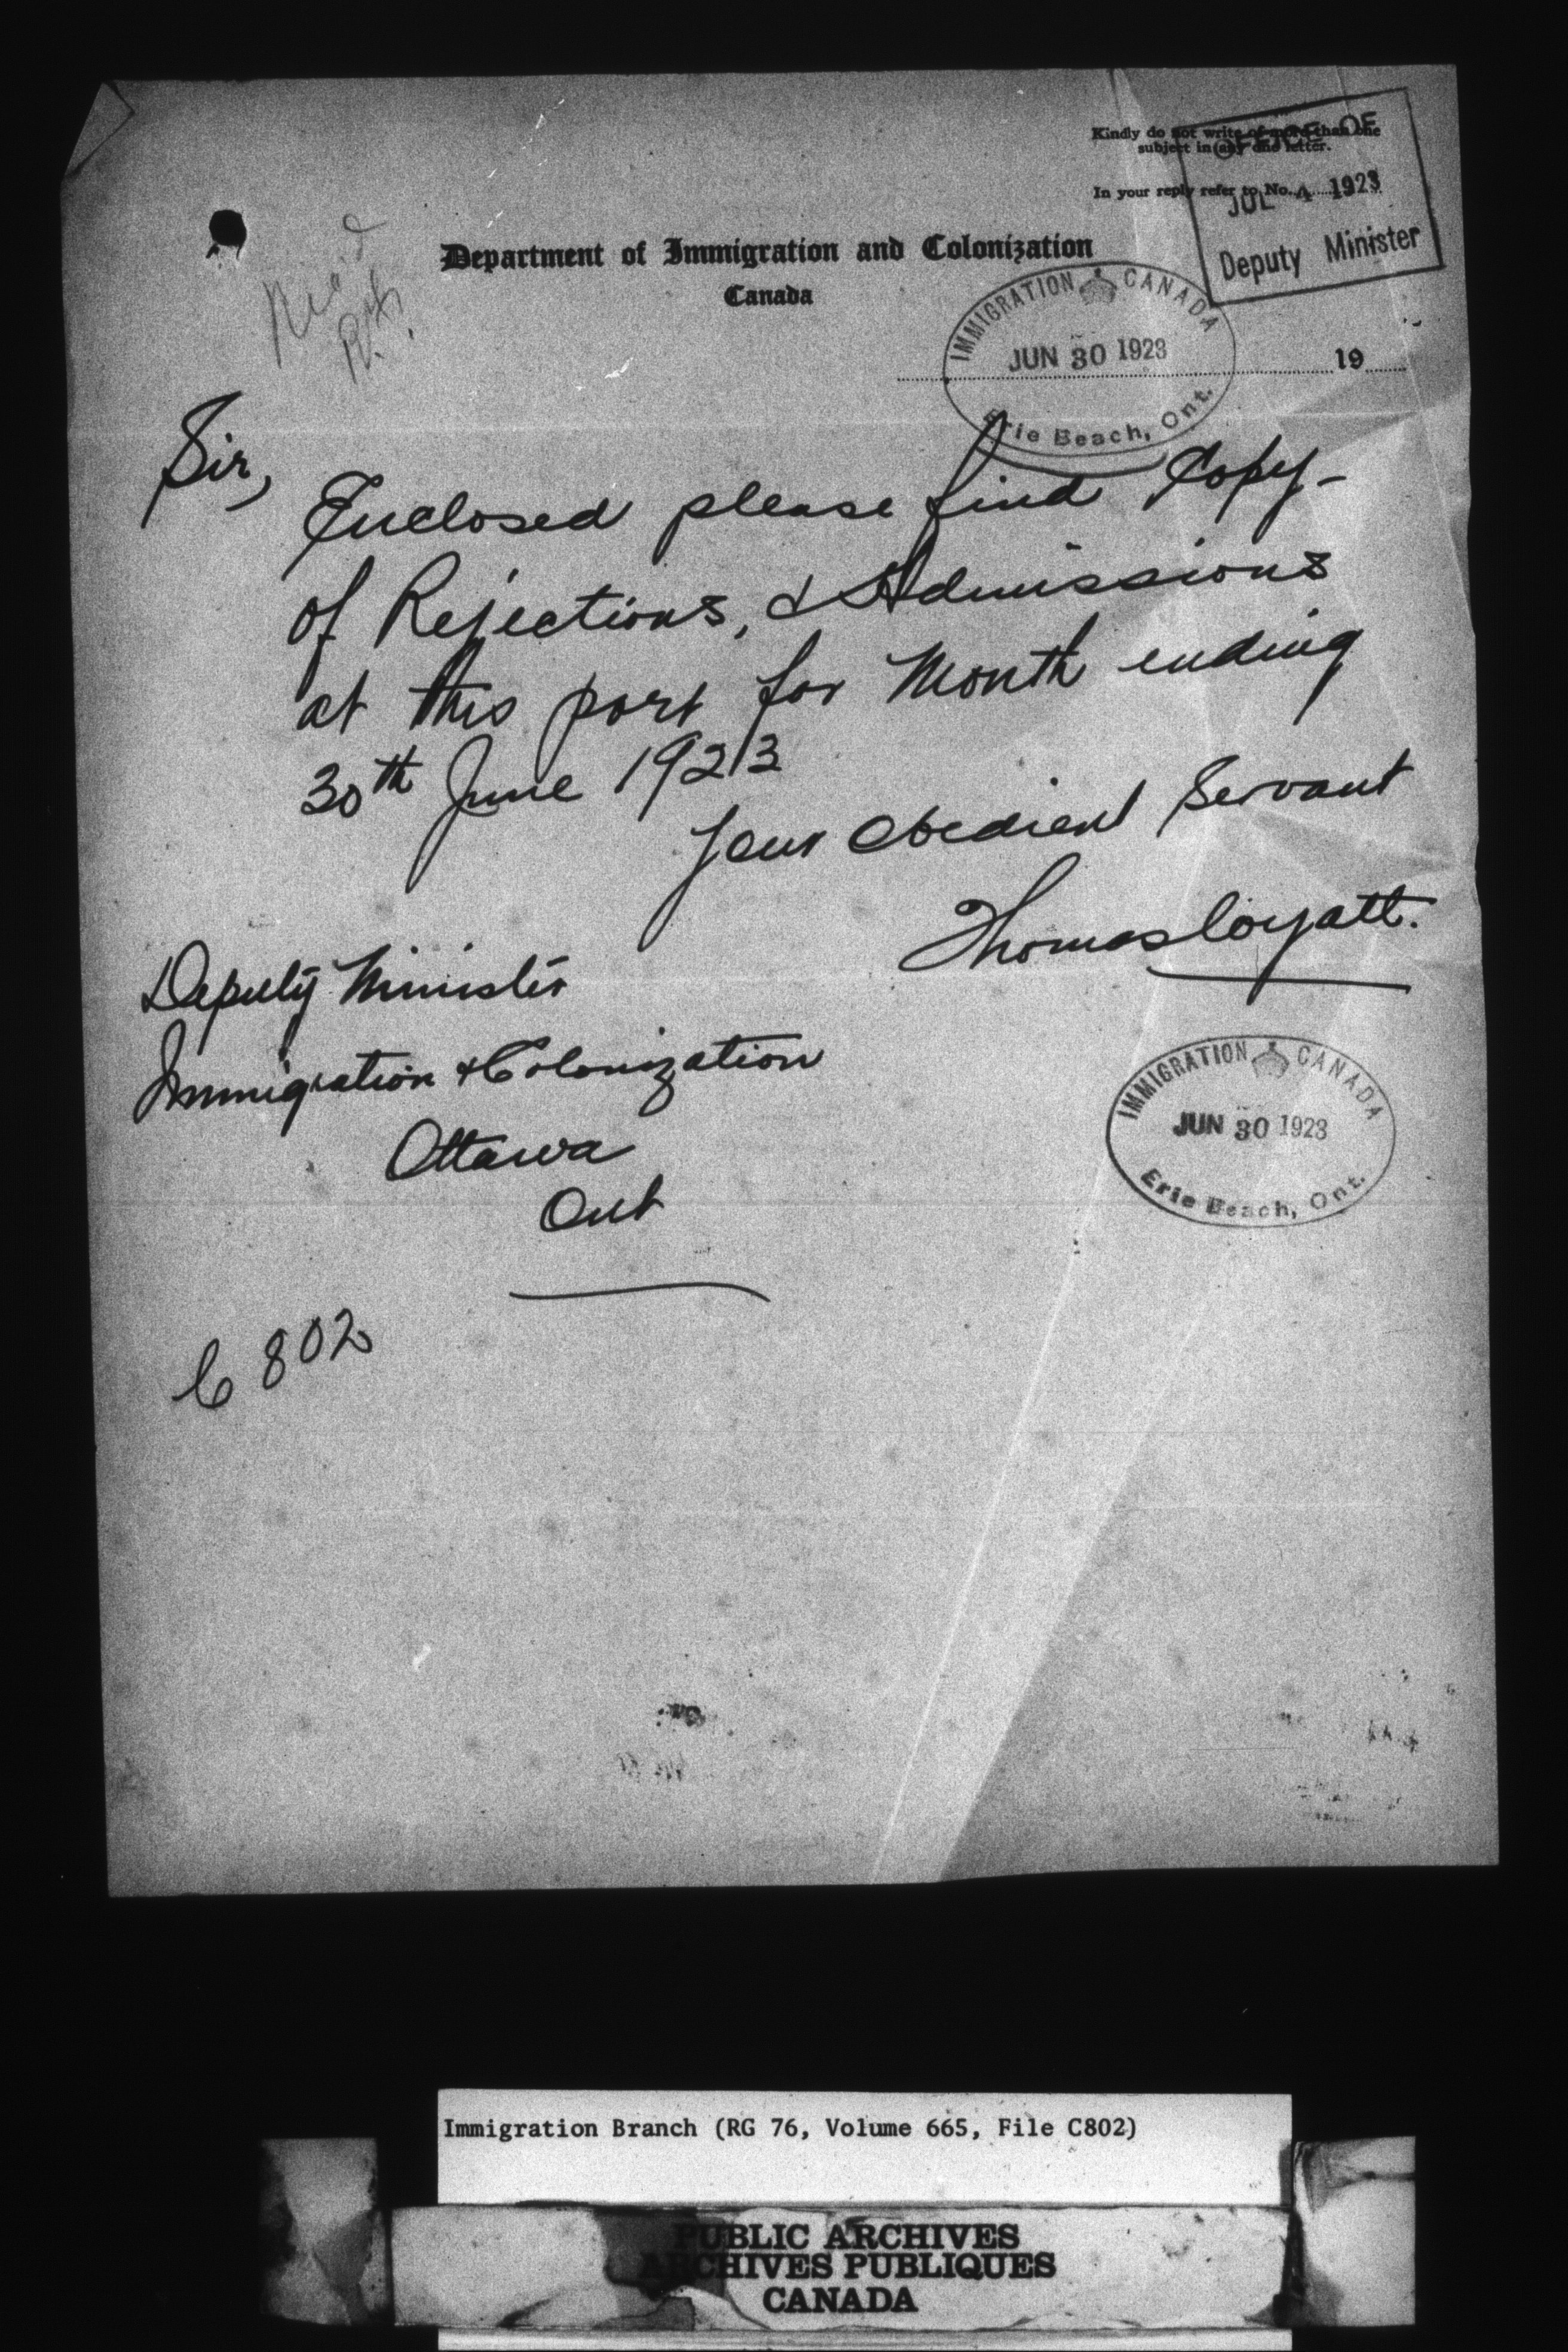 Kindly do not write of more than one
subject in any one letter.
In your reply refer to No.
OFFICE OF
JUL 4 1923
Deputy Minister
Department of Immigration and Colonization
Canada
IMMIGRATION CANADA
JUN 30 1923
Erie Beach, Ont.
19
Sir,
Enclosed please find Copy-
of Rejections, & Admissions
at this port for Month ending
30th June 1923
Your Obedient Servant
Thomas Wyatt.
Deputy Minister
Immigration & Colonization
Ottawa
Ont
IMMIGRATION CANADA
JUN 30 1923
Erie Beach, Ont.
C 802
Immigration Branch (RG 76, Volume 665, File C802)
PUBLIC ARCHIVES
ARCHIVES PUBLIQUES
CANADA